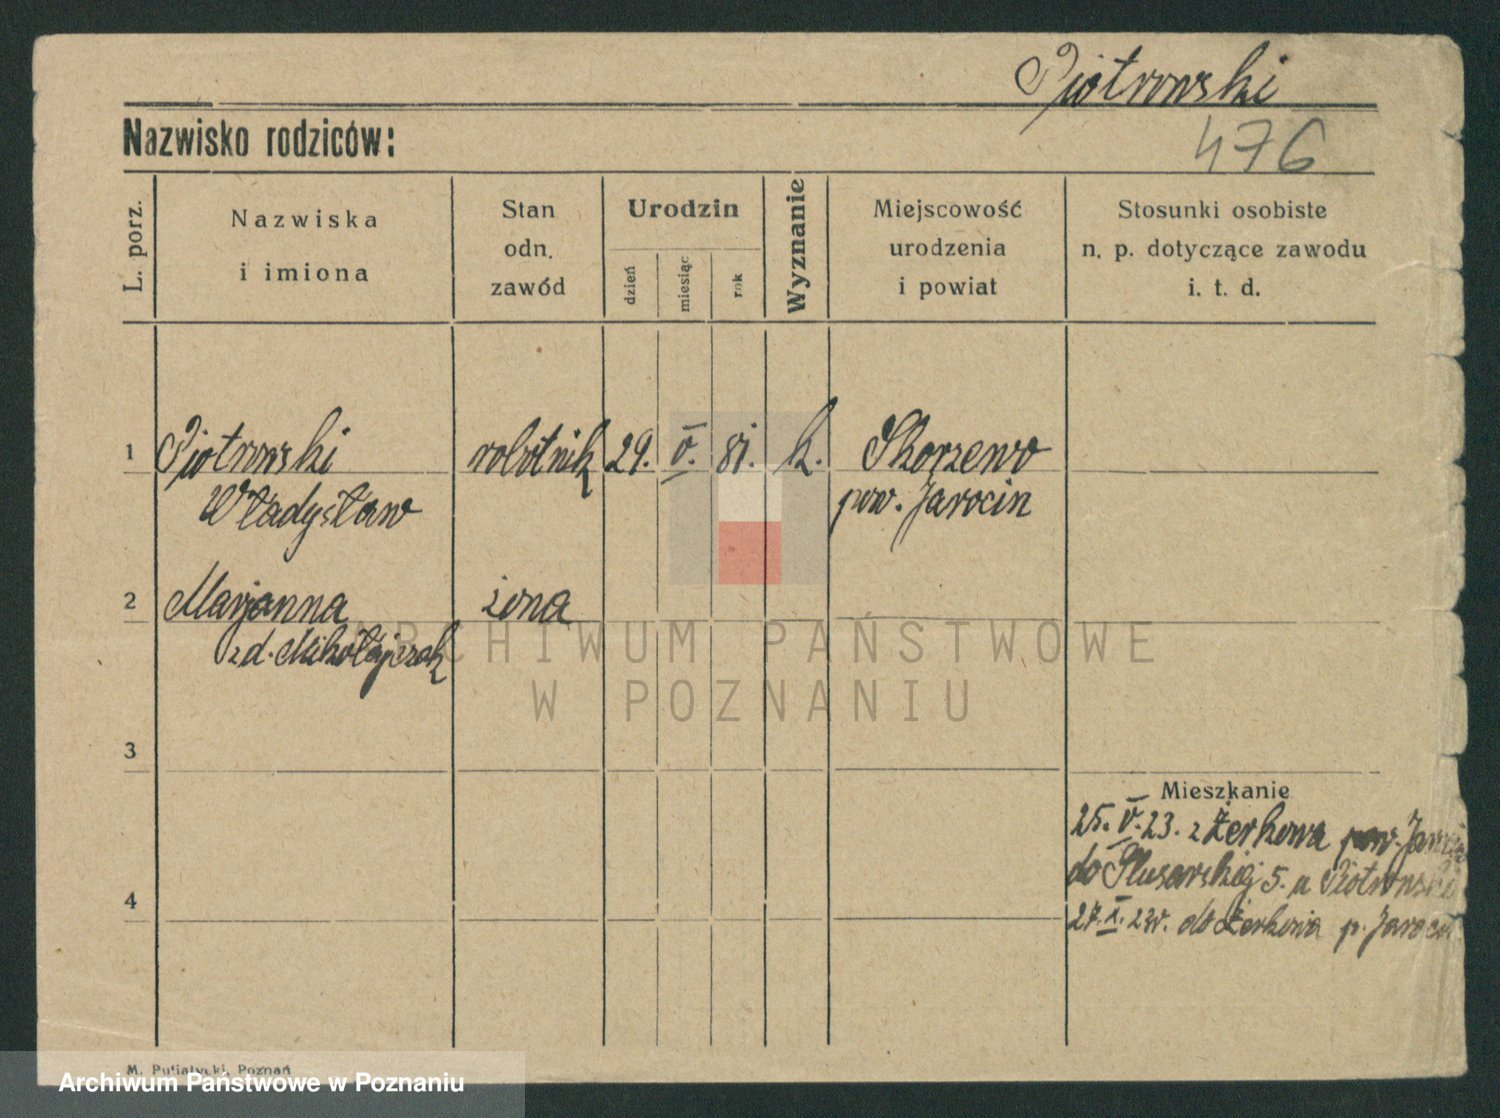 Piotrowski
Nazwisko rodziców:
476
L. porz.
Nazwiska
i imiona
Stan
odn.
zawód
Urodzin
dzień
miesiąc
rok
Wyznanie
Miejscowość
urodzenia
i powiat
Stosunki osobiste
n. p. dotyczące zawodu
i. t. d.
1 Piotrowski robotnik 29. V. 81. k. Skorzewo
Władysław pow. Jarocin
2 Marjanna żona
zd. Mikołajczak
ARCHIWUM PAŃSTWOWE
W POZNANIU
3
Mieszkanie
25. V. 23. z Żerkowa pow. Jarocin
do Ślusarskiej 5. u Piotrowski
4
27. X. 23r. do Żerkowa p. Jarocin
M. Putiatycki, Poznań
Archiwum Państwowe w Poznaniu